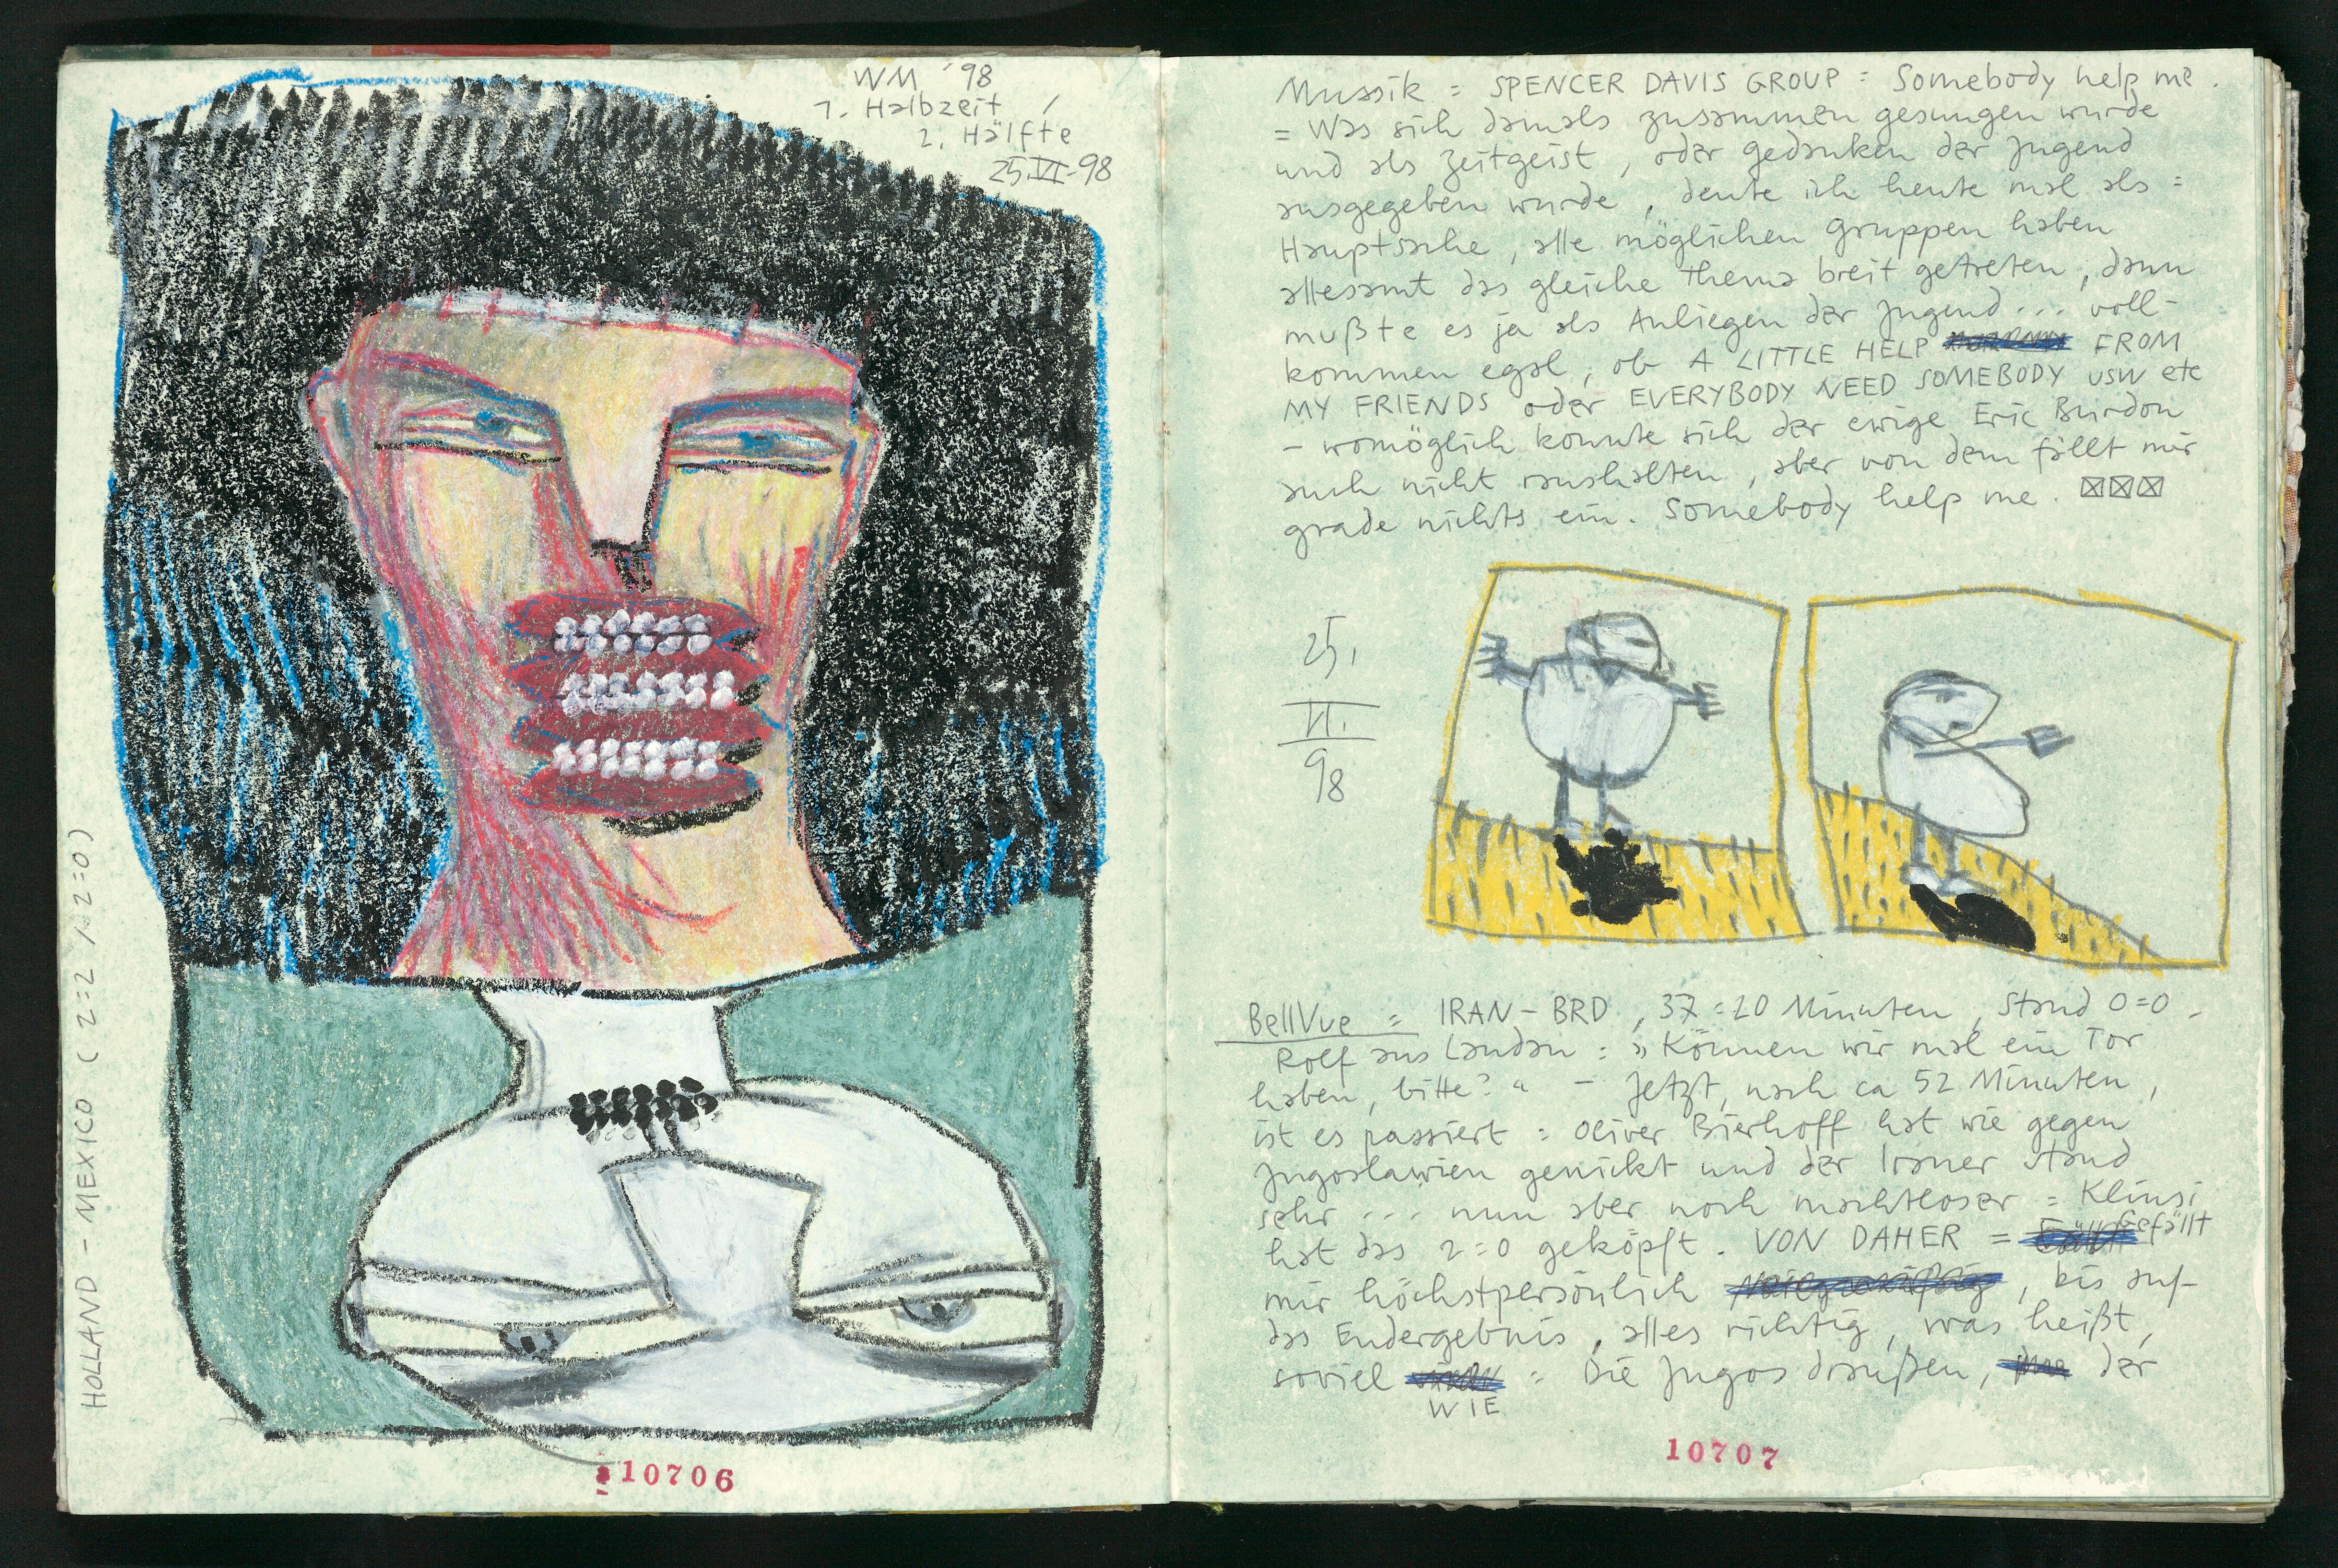 WM '98
1. Halbzeit /
2. Hälfte
25.VI-98
HOLLAND - MEXICO ( 2=2 / 2=0 )
10706
Mussik = SPENCER DAVIS GROUP = Somebody help me.
= Was sich damals zusammen gesungen wurde
und als Zeitgeist, oder gedanken der Jugend
ausgegeben wurde, deute ich heute mal als =
Hauptsache, alle möglichen Gruppen haben
allesamt das gleiche Thema breit getreten, dann
mußte es ja als Anliegen der Jugend... voll-
kommen egal, ob A LITTLE HELP FROM
MY FRIENDS oder EVERYBODY NEED SOMEBODY usw etc
- womöglich konnte sich der ewige Eric Burdon
auch nicht raushalten, aber von dem fällt mir
grade nichts ein. Somebody help me. ☒☒☒
25.
VI.
98
BellVue = IRAN - BRD, 37=20 Minuten, Stand 0=0.
Rolf aus Landau: "Können wir mal ein Tor
haben, bitte?" - Jetzt, nach ca 52 Minuten,
ist es passiert = Oliver Bierhoff hat wie gegen
Jugoslawien genickt und der Iraner stand
sehr ... nun aber noch machtloser = Klinsi
hat das 2=0 geköpft. VON DAHER = Gefällt
mir höchstpersönlich, bis auf
das Endergebnis, alles richtig, was heißt,
soviel WIE = Die Jugos draußen, der
10707